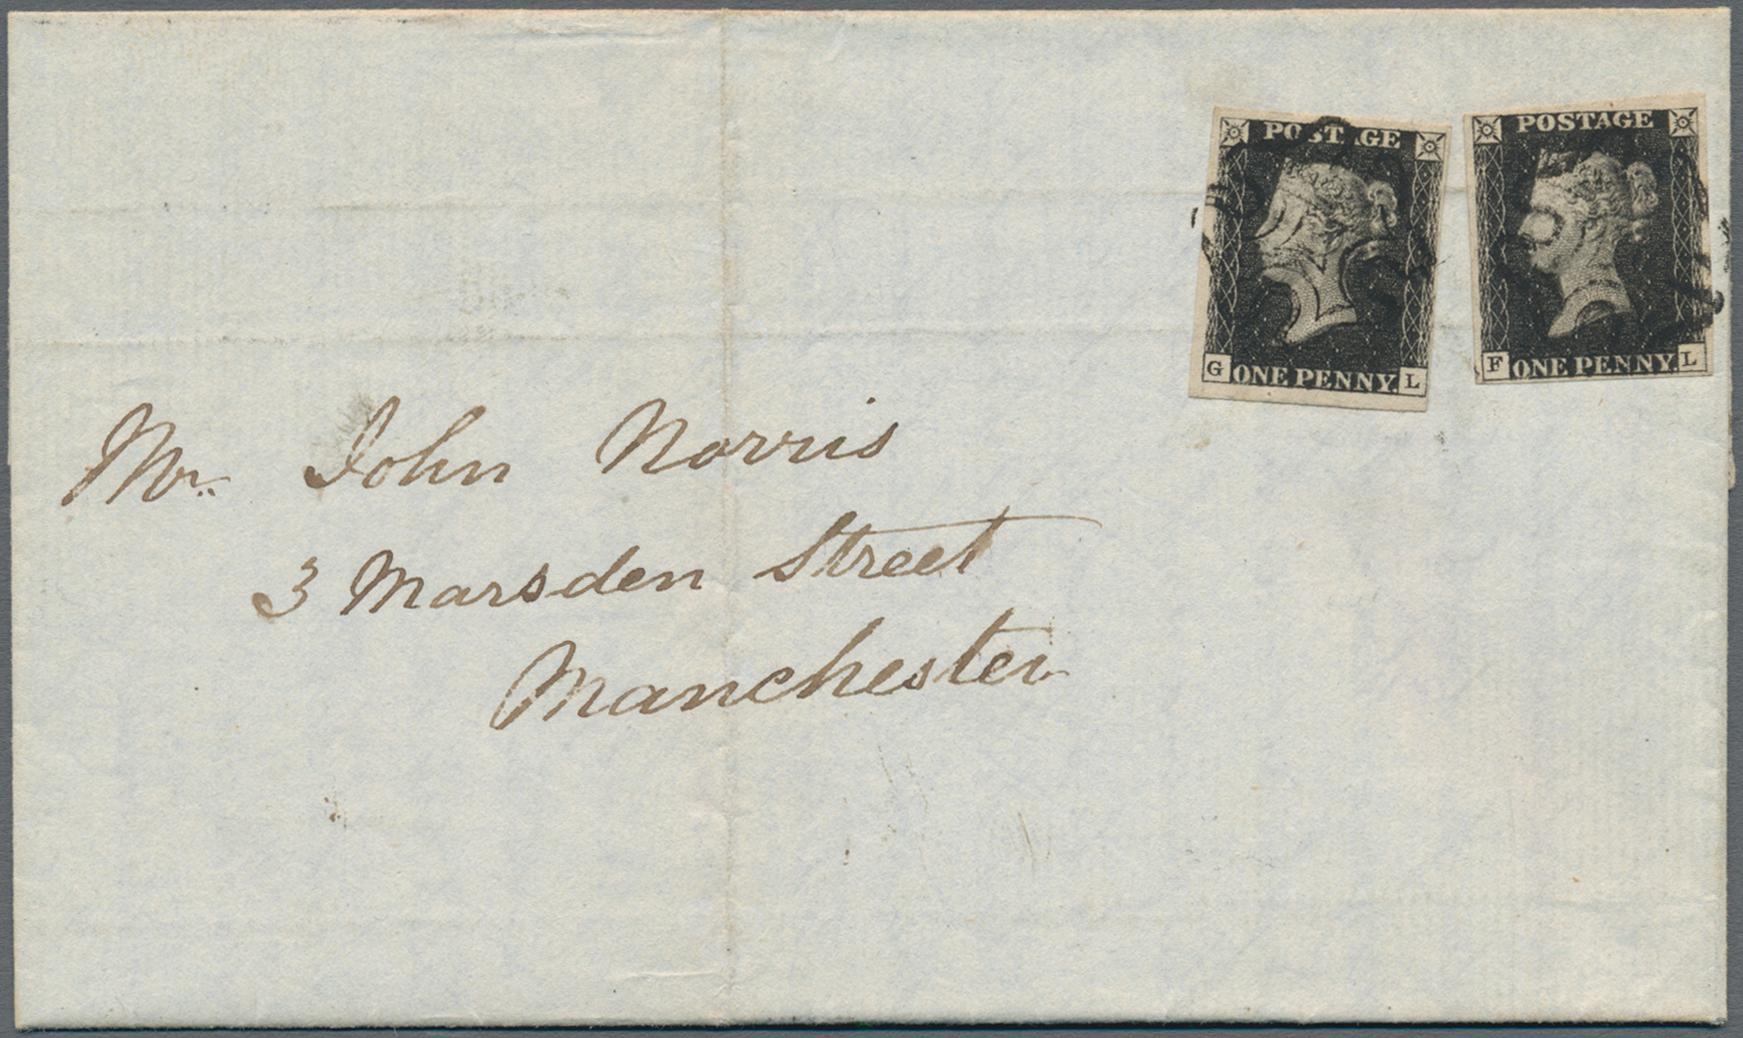 POSTAGE
G ONE PENNY. L
POSTAGE
F ONE PENNY. L
Mr. John Norris
3 Marsden Street
Manchester